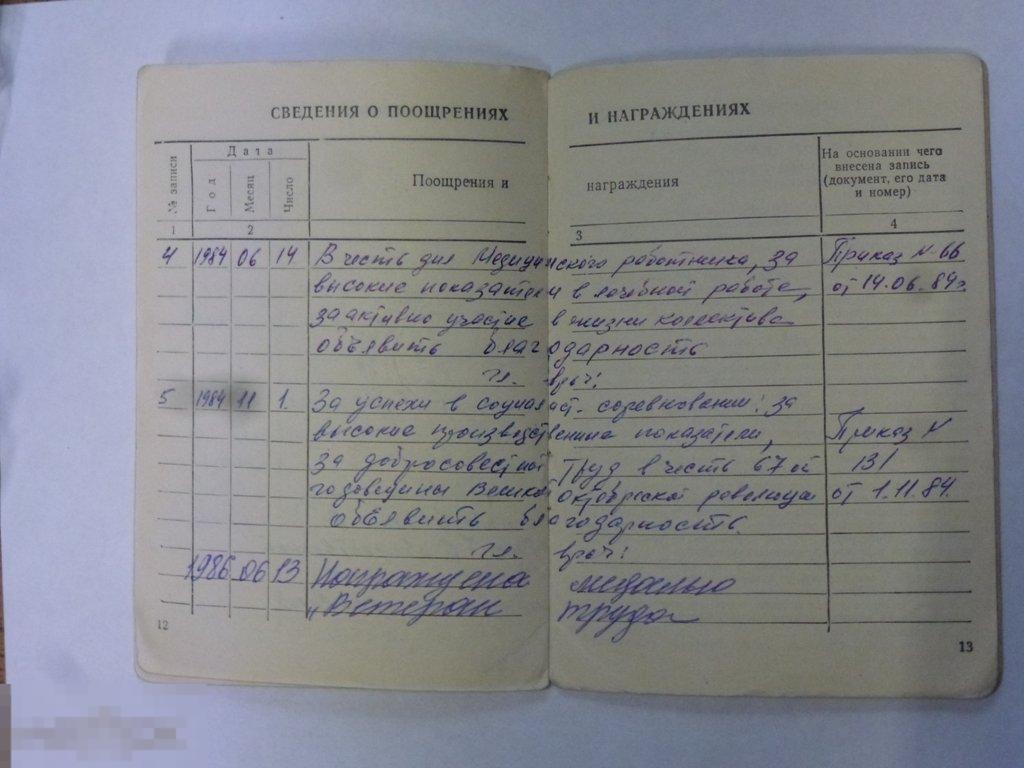 СВЕДЕНИЯ О ПООЩРЕНИЯХ И НАГРАЖДЕНИЯХ
№ записи Дата Поощрения и награждения На основании чего
внесена запись
(документ, его дата
и номер)
Год Месяц Число
1 2 3 4
4 1984 06 14 В честь дня Медицинского работника, за Приказ N 66
высокие показатели в лечебной работе, от 14.06.84г.
за активно участие в жизни коллектива
объявить благодарность
гл. врач:
5 1984 11 1. За успехи в социалист. соревновании: за
высокие производственние показатели, Приказ N
за добросовестной труд в честь 67 ой 131
годовщины Великой октябрьской революции от 1.11.84.
объявить благодарность.
гл. врач:
1986 06 13 Награждена медалью
„Ветеран труда
12
13